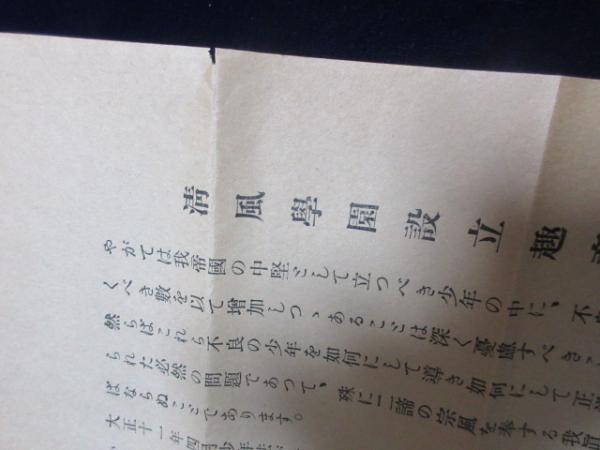 清風學園設立趣
やがては我帝國の中堅として立つべき少年の中に、不
くべき數を以て增加しつゝあることは深く憂慮すべき
然らばこれら不良の少年を如何にして導き如何にして正
られた必然の問題であつて、殊に二諦の宗風を奉する我
ばならぬことであります。
大正十一年四月少年